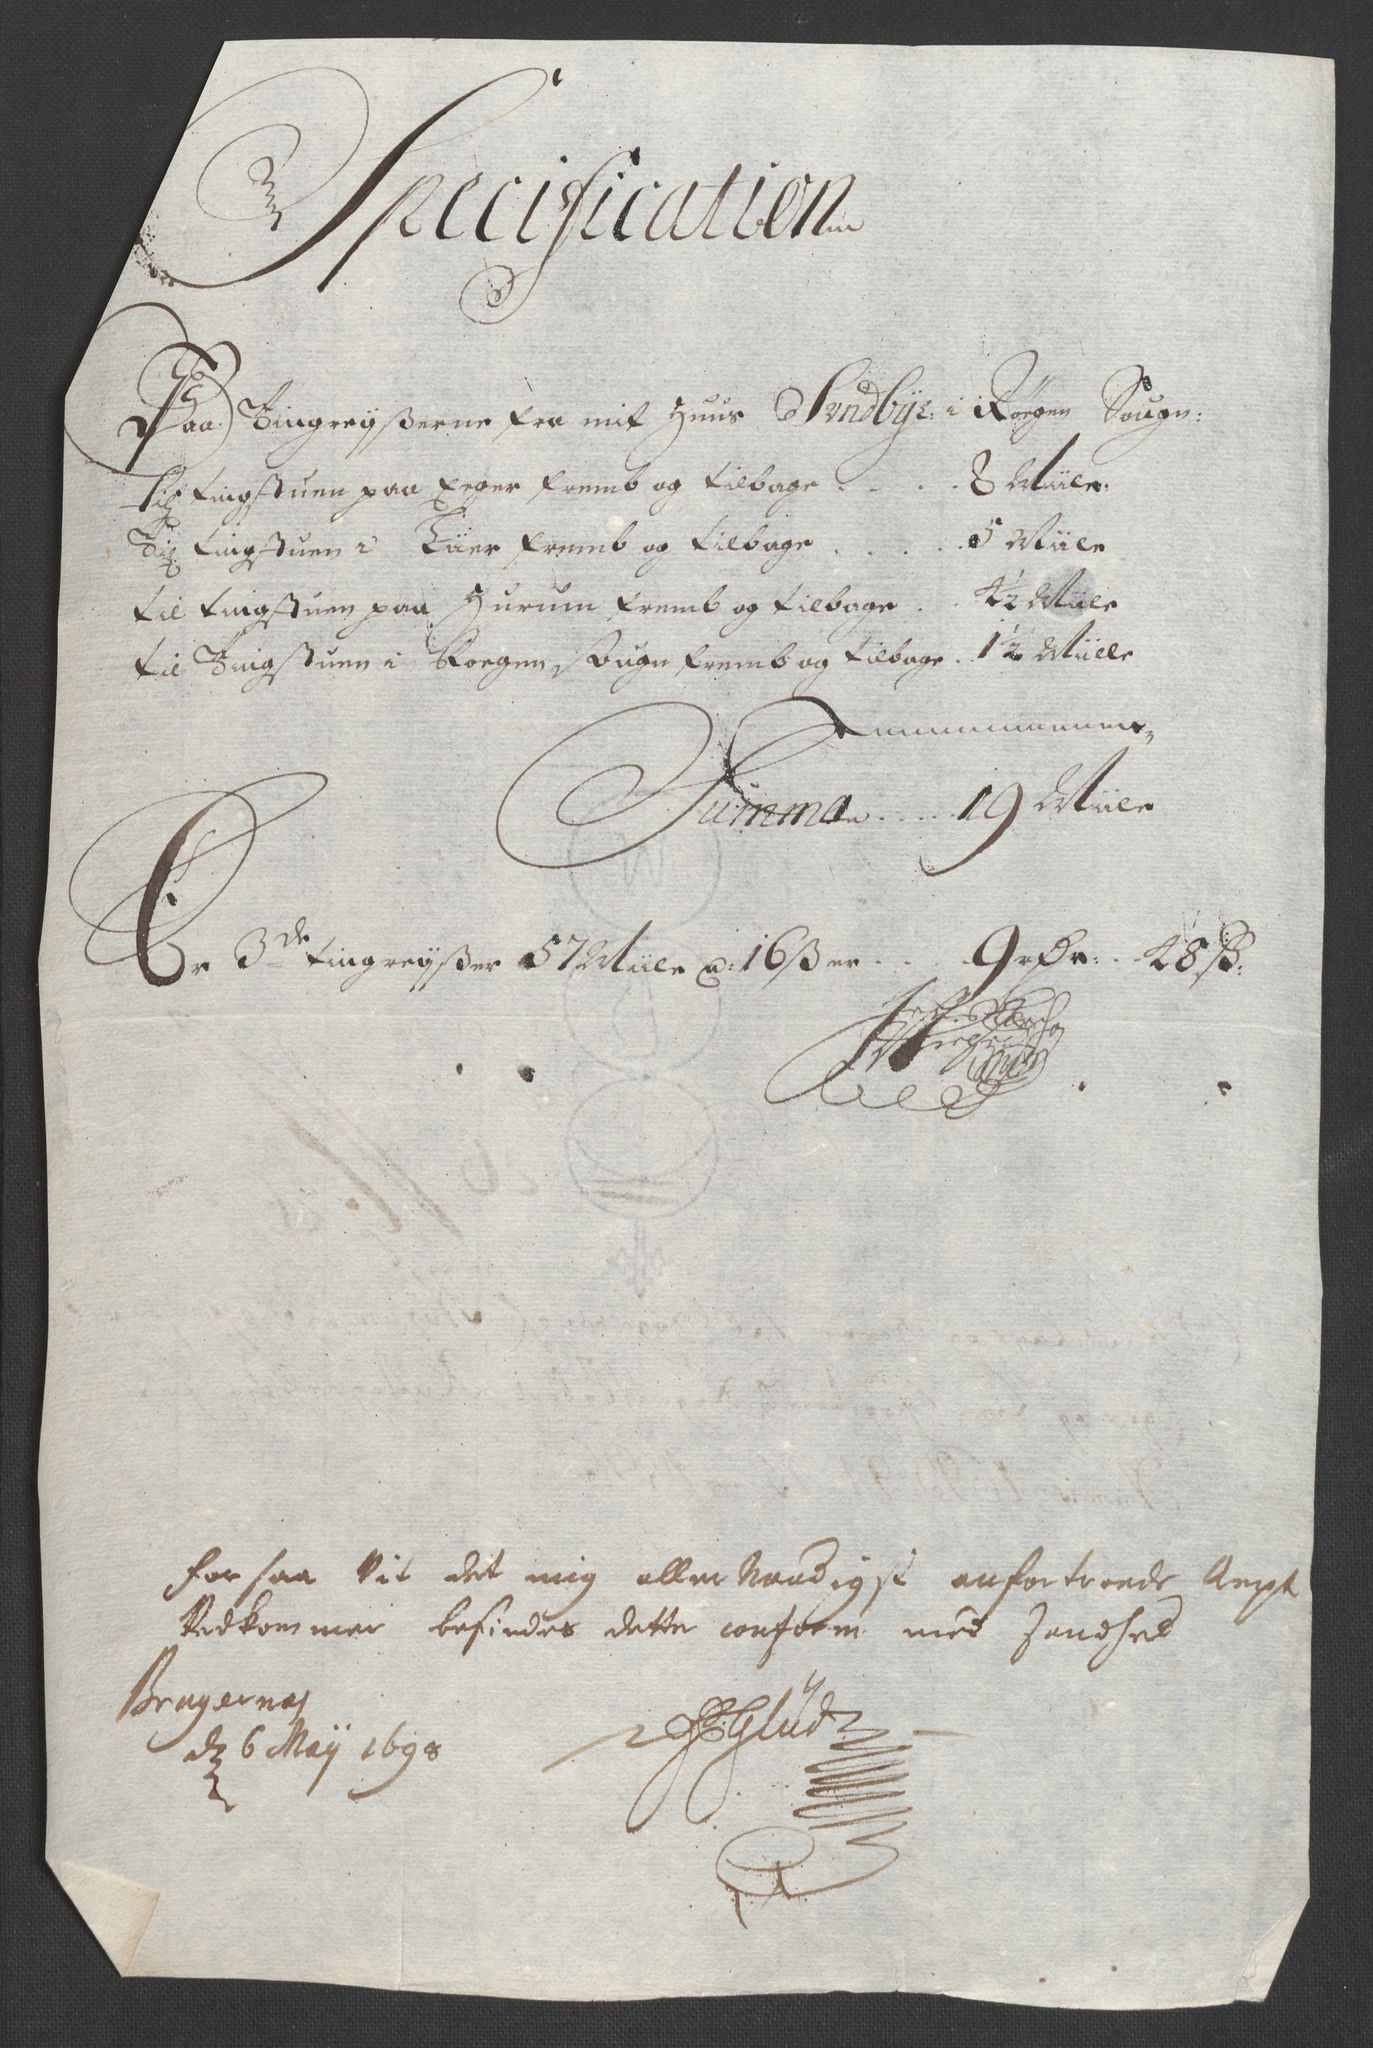 Specification
Paa Tingreyßerne fra mit Huus Sundbye: i Röegen Sougn:
Til tingstuen paa Eeger fremb og tilbage . . . . 8 Miile:
Til tingstuen i Lier fremb og tilbage . . . . . 5 Miile
til tingstuen paa Hurum fremb og tilbage . . 4½ Miile
til Tingstuen i Roegen Sougn fremb og tilbage . 1½ Miille
Summa . . . . 19 Miile
Er 3de tingreyßer 57 Miile a: 16 ß er . . . . 9 rdr: . . 48 ß:
for saa vit det mig allernaadigst anfortroede Ampt
Vedkommer befindes dette conform med Sandhed
Bragernes
d 6 Maÿ 1698
Glud